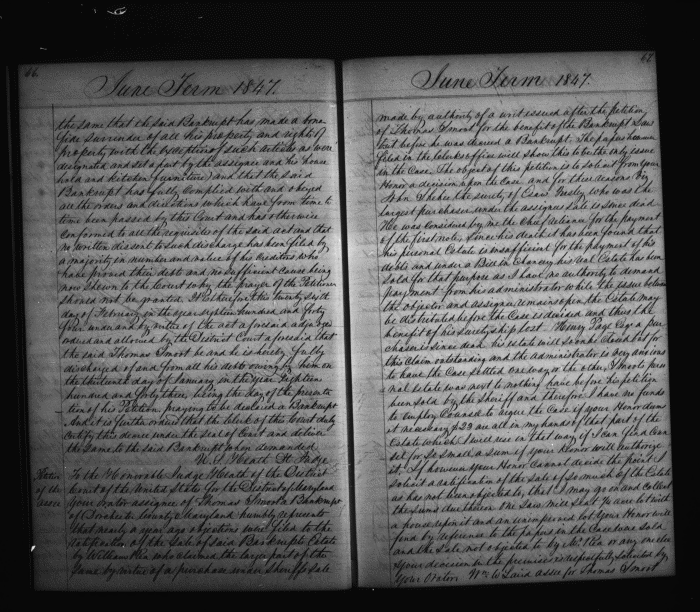 66
June Term 1847.
the same that the said Bankrupt has made a bona
fide surrender of all his property and rights of
property with the exception of such articles as were
designated and set apart by the assignee and his house
hold and kitchen furniture) and that the said
Bankrupt has fully complied with and obeyed
all the orders and directions which have from time to
time been passed by this Court and has otherwise
conformed to all the requisites of the said act and that
no written dissent to such discharge has been filed by
a majority in number and value of his creditors who
have proved their debts and no sufficient cause being
now shewn to the Court why the prayer of the Petitioner
should not be granted. It is therefore this twenty sixth
day of February in the year eighteen hundred and forty
four under and by virtue of the act aforesaid adjudged
ordered and allowed by the District Court aforesaid that
the said Thomas Smoot be and he is hereby fully
discharged of and from all his debts owing by him on
the thirteenth day of January in the year Eighteen
hundred and forty three, being the day of the presenta
tion of his Petition praying to be declared a Bankrupt
And it is further ordered that the Clerk of this Court duly
certify this decree under the seal of Court and deliver
the same to the said Bankrupt when demanded.
U. S. Heath Judge
of the
To the Honorable Judge Heath of the District
Court of the United States for the District of Maryland
Your orator assignee of Thomas Smoot a Bankrupt
of County Maryland humbly represents
That nearly a year ago objections were filed to the
ratification of the Sale of said Bankrupts Estate
by William who claimed the larger part of the
same by virtue of a purchase under Sheriffs Sale
67
June Term 1847.
made by authority of a writ issued after the petition
of Thomas Smoot for the benefit of the Bankrupt Law
but before he was decreed a Bankrupt. The papers heretofore
filed in the clerks office will show this to be the only issue
in the Case. The object of this petition is to solicit from your
Honor a decision upon the Case and for these reasons Viz
John the surety of who was the
largest purchaser under the assignees sale is since dead
He was considered by me the Chief reliance for the payment
of the first note, since his death it has been found that
his personal Estate is insufficient for the payment of his
debts and under a Bill in Chancery his real Estate has been
sold for that purpose as I have no authority to demand
payment from his administrator while the issue between
the objector and assignee remains open, the Estate may
be distributed before the Case is decided and thus the
benefit of his suretyship lost. Henry Page Esq a pur
chaser is since dead his estate will soon be closed but for
this Claim outstanding and the administrator is very anxious
to have the Case settled one way or the other. Smoots perso
nal estate was next to nothing have before his petition
been sold by the sheriff and therefore I have no funds
to employ Counsel to argue the Case if your Honor deems
it necessary $23 are all in my hands of that part of the
Estate which I will use in that way, if I can find Coun
sel for so small a sum if your Honor will authorize
it. If however your Honor Cannot decide the point I
solicit a ratification of the Sale of so much of the Estate
as has not been objected to, that I may go on and Collect
the sums due thereon.
a house upon it and an unimproved lot Your Honor will
find by reference to the papers in the Case were sold
and the Sale not objected to by Mr. or any one else
Your decision in the premises is respectfully solicited by
Your Orator Wm assee for Thomas Smoot